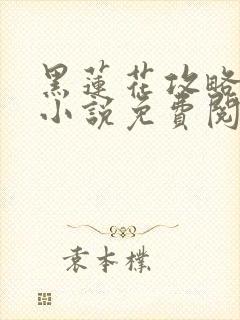 黑蓮花攻略
小說免費閱
袁本樸